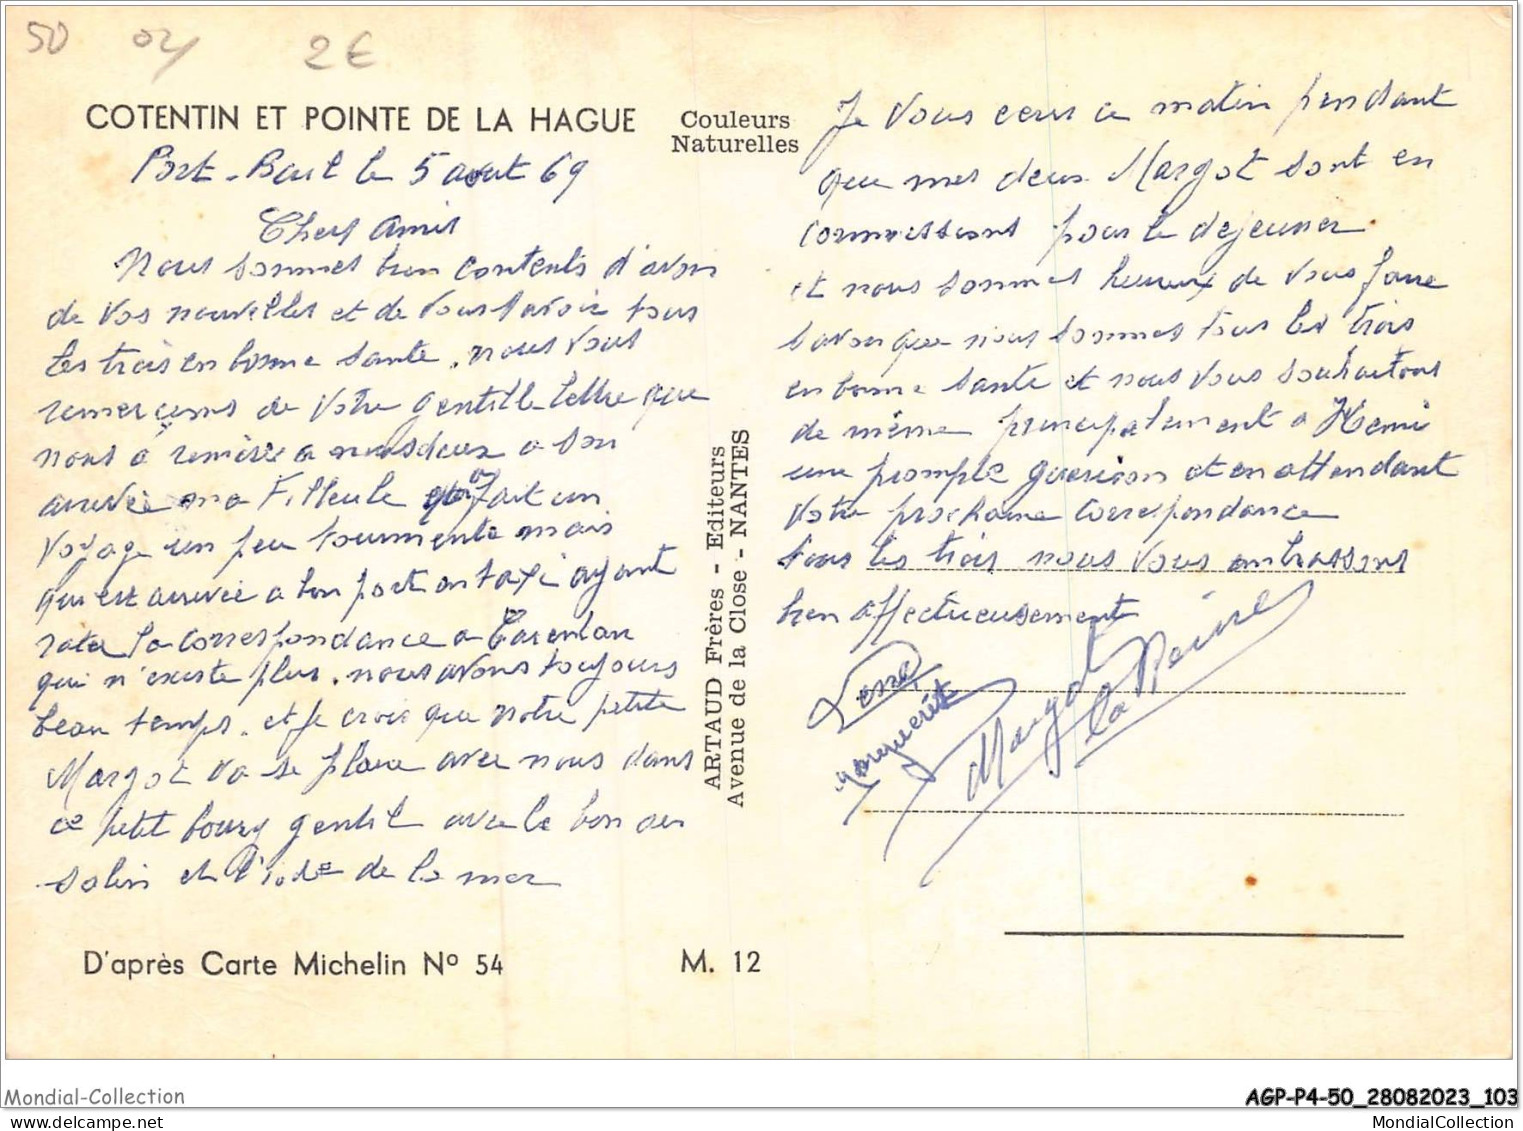 50 04 2€
COTENTIN ET POINTE DE LA HAGUE
Couleurs
Naturelles
Port-Bail le 5 aout 69
Chers amis
Nous sommes bien contents d'avoir
de vos nouvelles et de vous savoir tous
les trois en bonne sante. nous vous
remercions de votre gentille lettre que
nous a remise a nous deux a son
arrivée ma Filleule qui fait un
voyage un peu tourmente mais
qui est arrivee a bon port en taxi ayant
rater la correspondance a Carentan
qui n'existe plus. nous avons toujours
beau temps. et je crois que notre petite
Margot va se plaire avec nous dans
ce petit bourg gentil avec le bon air
salin et l'iode de la mer
D'après Carte Michelin Nº 54
M. 12
ARTAUD Frères - Editeurs
Avenue de la Close - NANTES
Je vous ecris ce matin pendant
que mes deux Margot sont en
commissions pour le dejeuner
et nous sommes heureux de vous faire
savoir que nous sommes tous les trois
en bonne sante et nous vous souhaitons
de même principalement a
une prompte guerison et en attendant
votre prochaine correspondance
tous les trois nous vous embrassons
bien affectueusement
Marguerite
Margot
la
Mondial-Collection
AGP-P4-50_28082023_103
MondialCollection